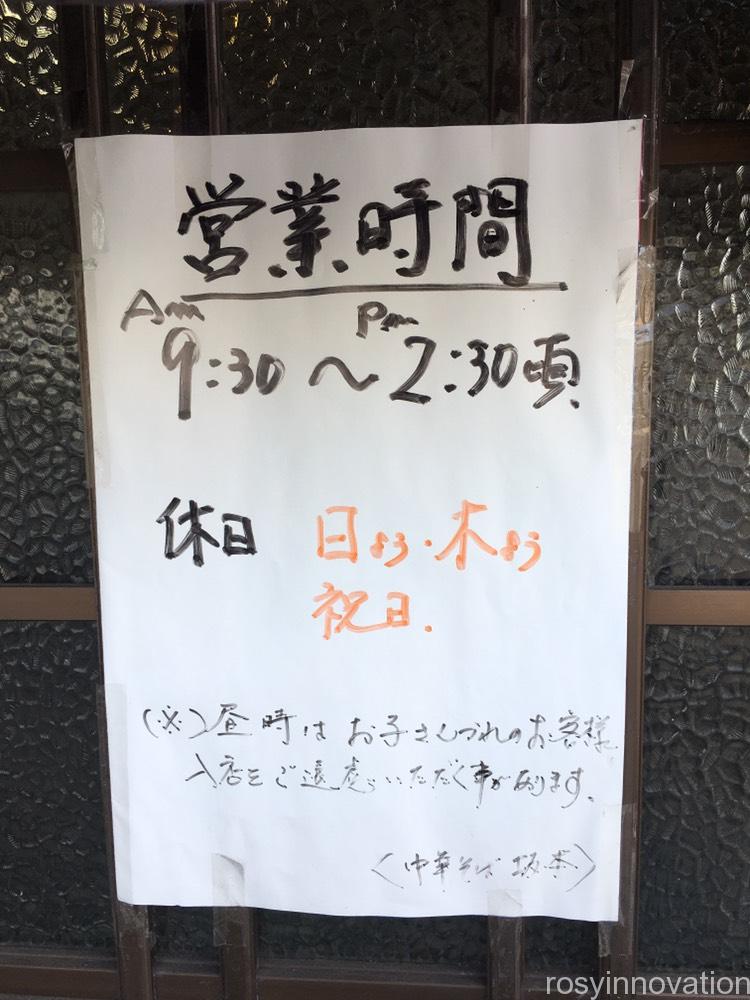 営業時間
Am 9:30 〜 Pm 2:30頃
休日 日よう・木よう
祝日.
(※)昼時はお子さんづれのお客様
入店をご遠慮いただく事があります。
〈中華そば 坂本〉
rosyinnovation